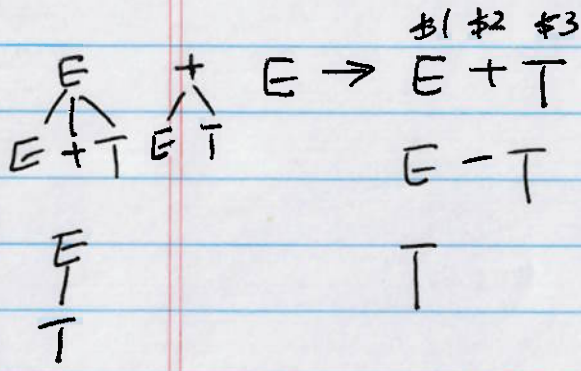 $1 $2 $3
E + E → E + T
E + T E T
E - T
E
T
T